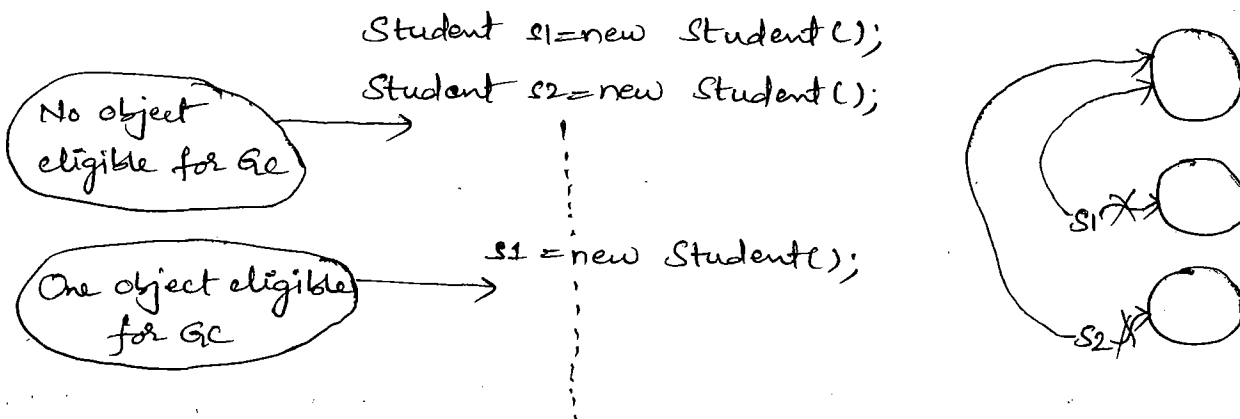 Student s1=new Student();
Student s2=new Student();
No object
eligible for GC
s1 = new Student();
One object eligible
for GC
s1
s2